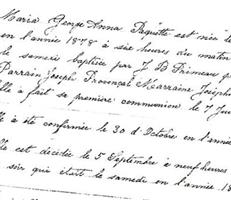 Maria George Anna Paquette est née le
en l'année 1878 à six heures du matin
le samedi baptisée par J. B. Primeau
Parrain Joseph Provençal Marraine Joseph
lle a fait sa première communion le 7 Jui
lle a été confirmée le 30 d'Octobre en l'année
lle est décédée le 5 Septembre à neuf heures
soir qui était le samedi en l'année 18